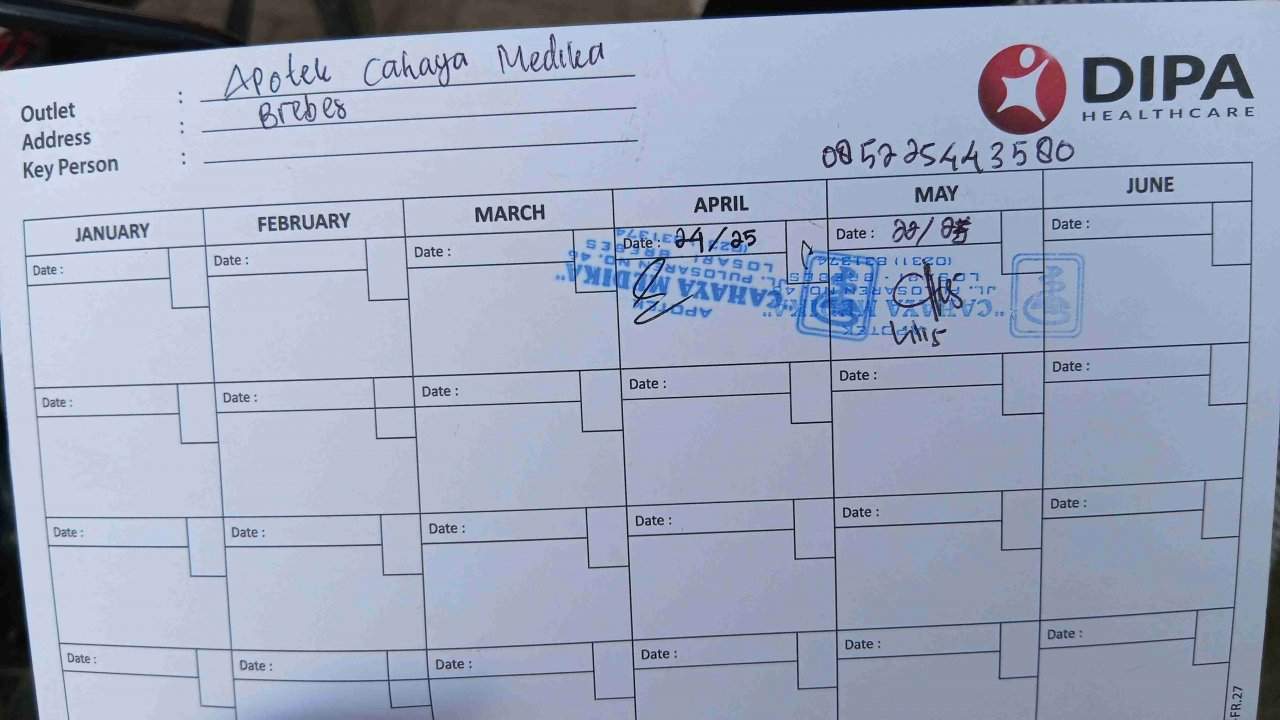 Outlet : Apotek Cahaya Medika
Address : Brebes
Key Person :
DIPA
HEALTHCARE
085225443580
JANUARY FEBRUARY MARCH APRIL MAY JUNE
Date : Date : Date : Date : 24/25 Date : 22/25 Date :
APOTEK
"CAHAYA MEDIKA"
JL. PULOSAREN NO. 46
LOSARI - BREBES
(0231) 831374
APOTEK
"CAHAYA MEDIKA"
JL. PULOSAREN NO. 46
LOSARI - BREBES
(0231) 831374
Lilis
Date : Date : Date : Date : Date : Date :
Date : Date : Date : Date : Date : Date :
Date : Date : Date : Date : Date : Date :
FR.27